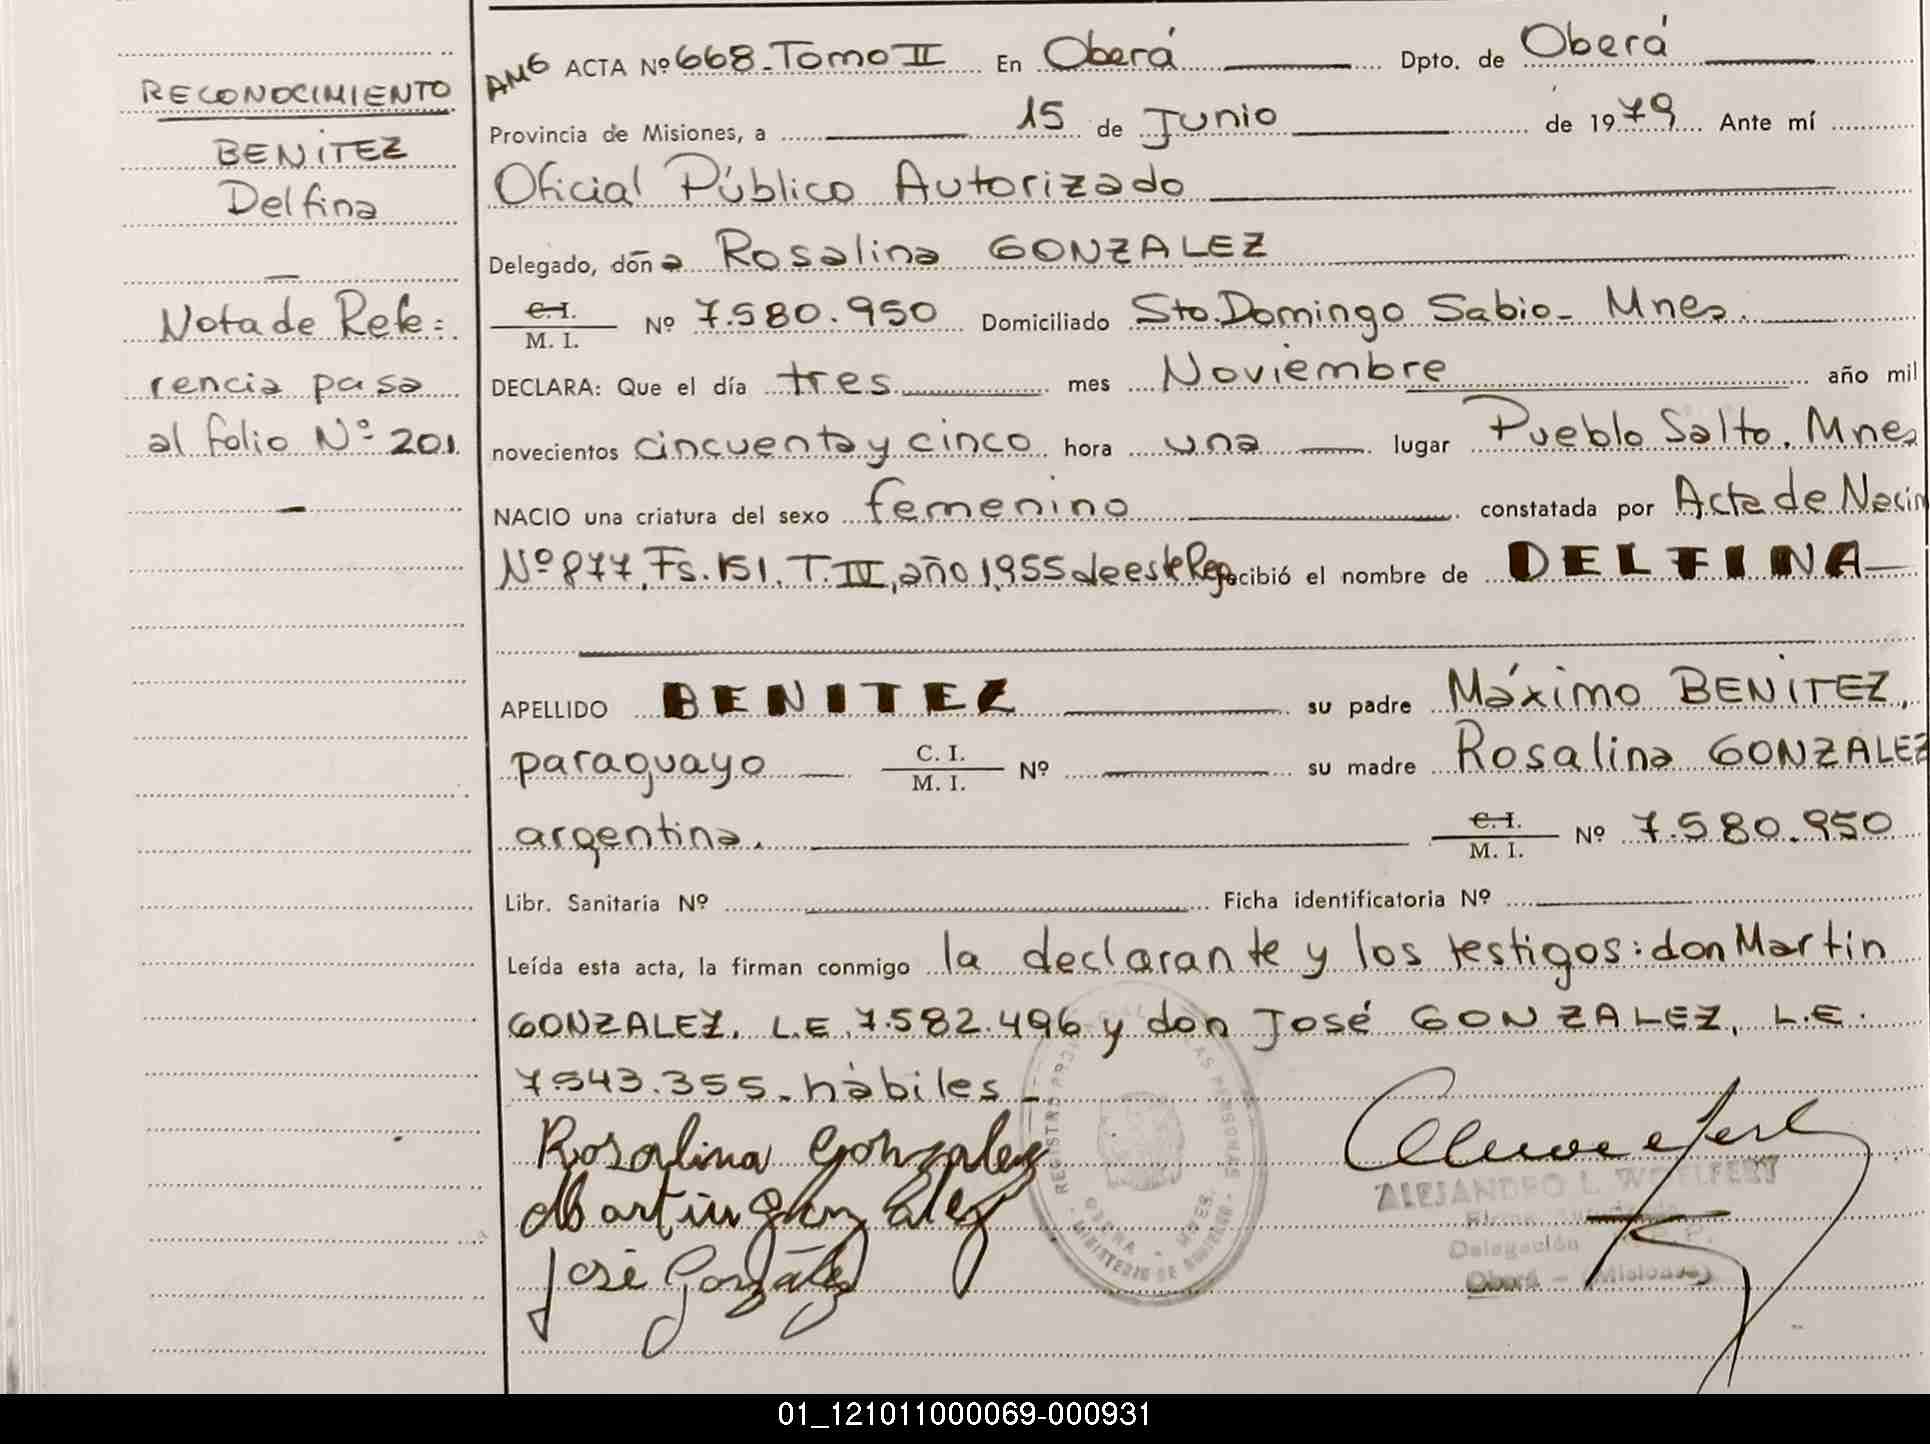 RECONOCIMIENTO
BENITEZ
Delfina
Nota de Refe=
rencia pasa
al folio Nº 201.
AMG ACTA Nº 668 - Tomo II En Oberá Dpto. de Oberá
Provincia de Misiones, a 15 de Junio de 1979 Ante mí
Oficial Público Autorizado
Delegado, doña Rosalina GONZALEZ
C.I. / M. I. Nº 7.580.950 Domiciliado Sto. Domingo Sabio - Mnes.
DECLARA: Que el día tres mes Noviembre año mil
novecientos cincuenta y cinco hora una lugar Pueblo Salto. Mnes
NACIO una criatura del sexo femenino constatada por Acta de Nacim
Nº 877, Fs. 151, T. III, año 1955 de este Reg. recibió el nombre de DELFINA
APELLIDO BENITEZ su padre Máximo BENITEZ,
paraguayo C. I. / M. I. Nº su madre Rosalina GONZALEZ
argentina. C.I. / M. I. Nº 7.580.950
Libr. Sanitaria Nº Ficha identificatoria Nº
Leída esta acta, la firman conmigo la declarante y los testigos: don Martin
GONZALEZ. L.E. 7.582.496 y don José GONZALEZ, L.E.
7.543.355 - hàbiles -
Rosalina Gonzalez
Martin Gonzalez
José González
REGISTRO PROVINCIAL DE LAS PERSONAS
OBERA - MNES.
MINISTERIO DE GOBIERNO
ALEJANDRO L. WOELFERT
Delegación
Oberá - (Misiones)
01_121011000069-000931